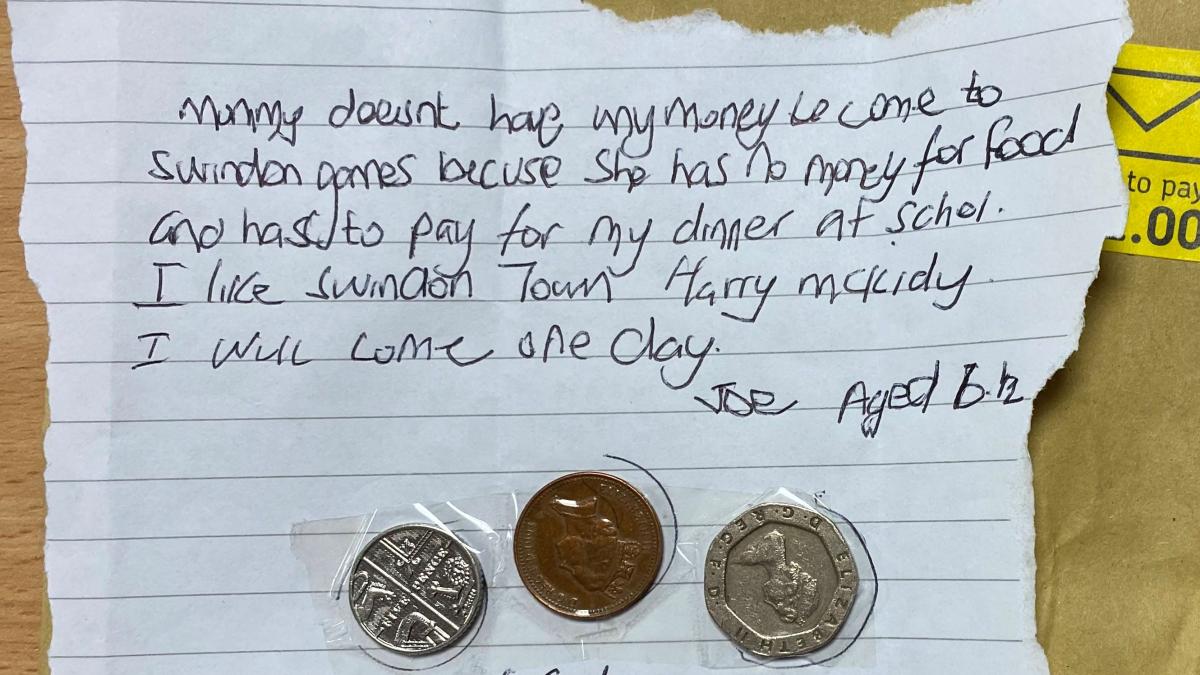 Mommy doesnt have any money to come to
Swindon games becuse she has no money for food
and has to pay for my dinner at schol.
I like Swindon Town Harry mckidy.
I will come one day.
Joe Aged 6.½
to pay
.00
FIVE PENCE
ELIZABETH II D.G.REG.F.D.